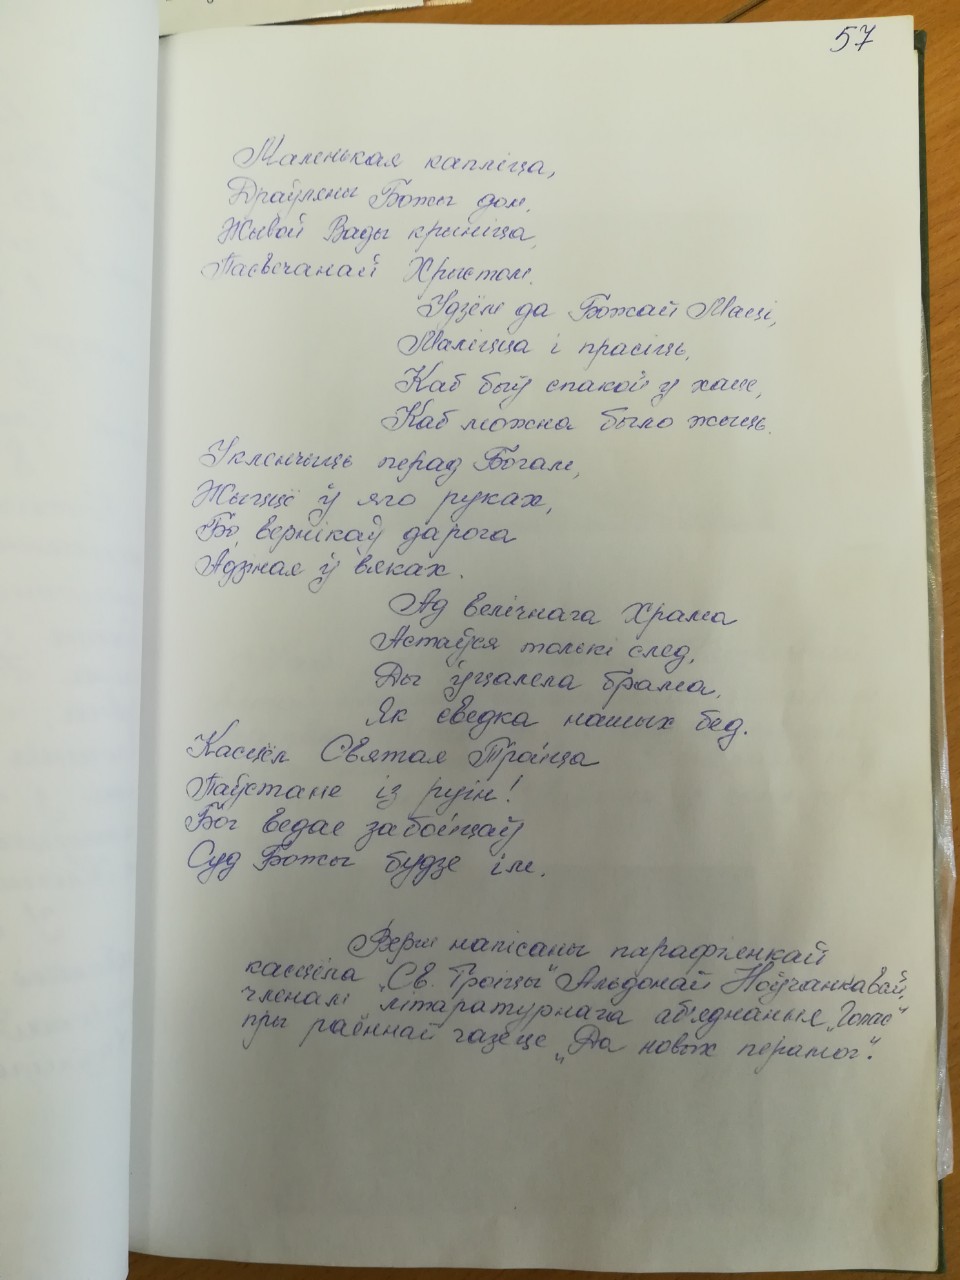 57
Маленькая капліца,
Драўляны Божы дом,
Жывой Вады крыніца,
Пасвечанай Хрыстом.
Удзём да Божай Маці,
Маліцца і прасіць,
Каб быў спакой у хаце,
Каб можна было жыць.
Укленчыць перад Богам,
Жыццё ў яго руках,
Бо, вернікаў дарога
Адзіная ў вяках.
Ад велічнага Храма
Астаўся толькі след,
Ды ўцалела брама,
Як сведка нашых бед.
Касцёл Святая Тройца
Паўстане із руін!
Бог ведае забойцаў
Суд Божы будзе ім.
Верш напісаны парафіенкай
касцёла „Св. Тройцы" Альдонай Ноўчанкавай,
членам літаратурнага аб'еднання „Голас"
пры раённай газеце „Да новых перамог".